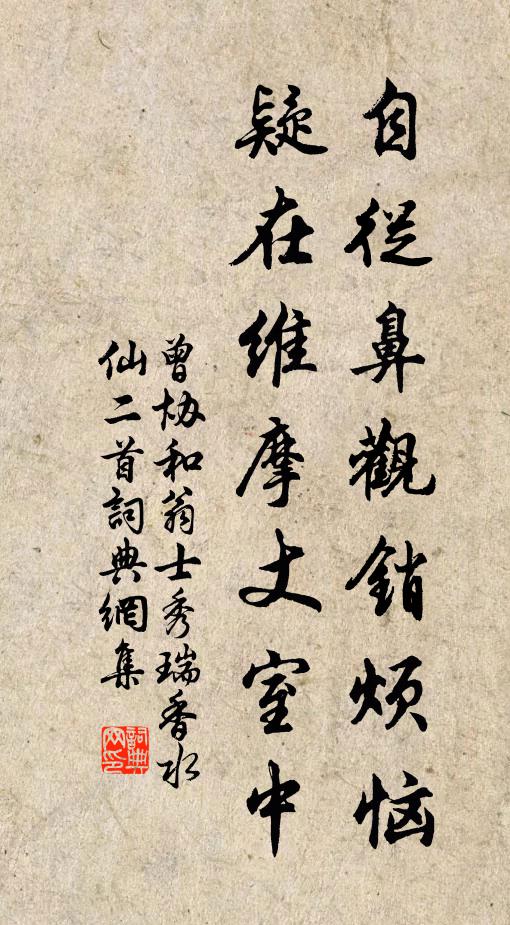 自從鼻觀銷煩恼
疑在維摩丈室中
曾协和翁士秀瑞香水
仙二首詞典網集
詞典
网印